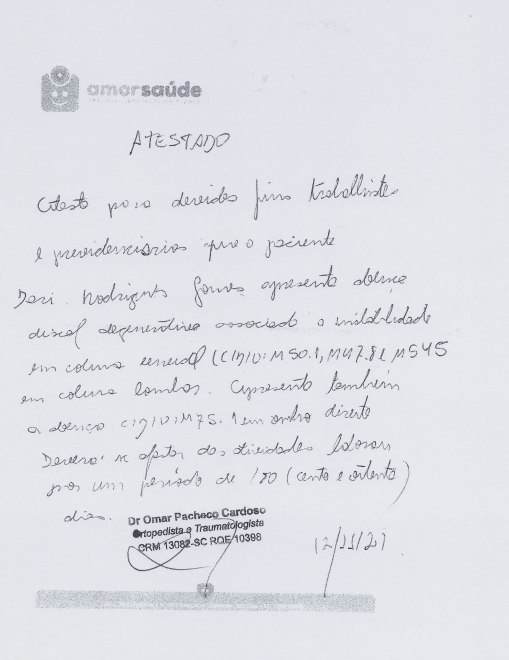 amorsaúde
ATESTADO
Atesto para devidos fins trabalhistas
e previdenciarios que o paciente
Rodrigues apresenta doença
discal degenerativa associado a instabilidade
em coluna cervical (CID10: M50.1, M47.8 e M54.5
em coluna lombar. Apresenta também
a doença CID10: M75.1 em ombro direito
Devera se afastar das atividades laborais
por um período de 180 (cento e oitenta)
dias.
Dr Omar Pacheco Cardoso
Ortopedista e Traumatologista
CRM 13082-SC RQE 10398
12/11/21